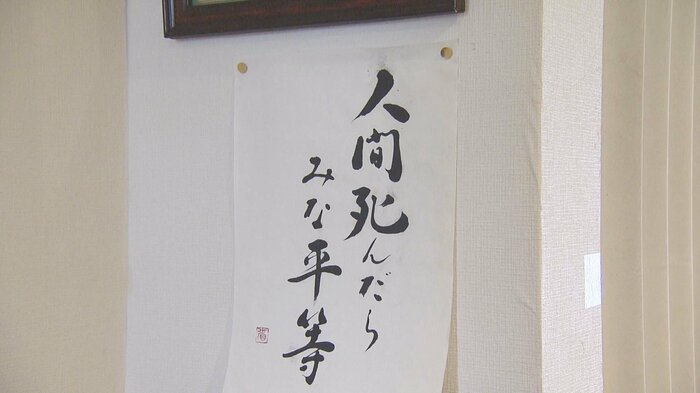 人間死んだら
みな平等